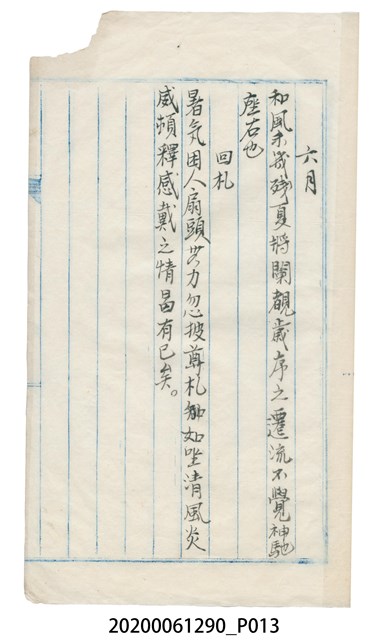 六月
和風未幾殘夏將闌覩歲序之遷流不覺神馳
座右也
回札
暑氣困人扇頭無力忽披尊札如坐清風炎
威頓釋感戴之情曷有已矣。
20200061290_P013